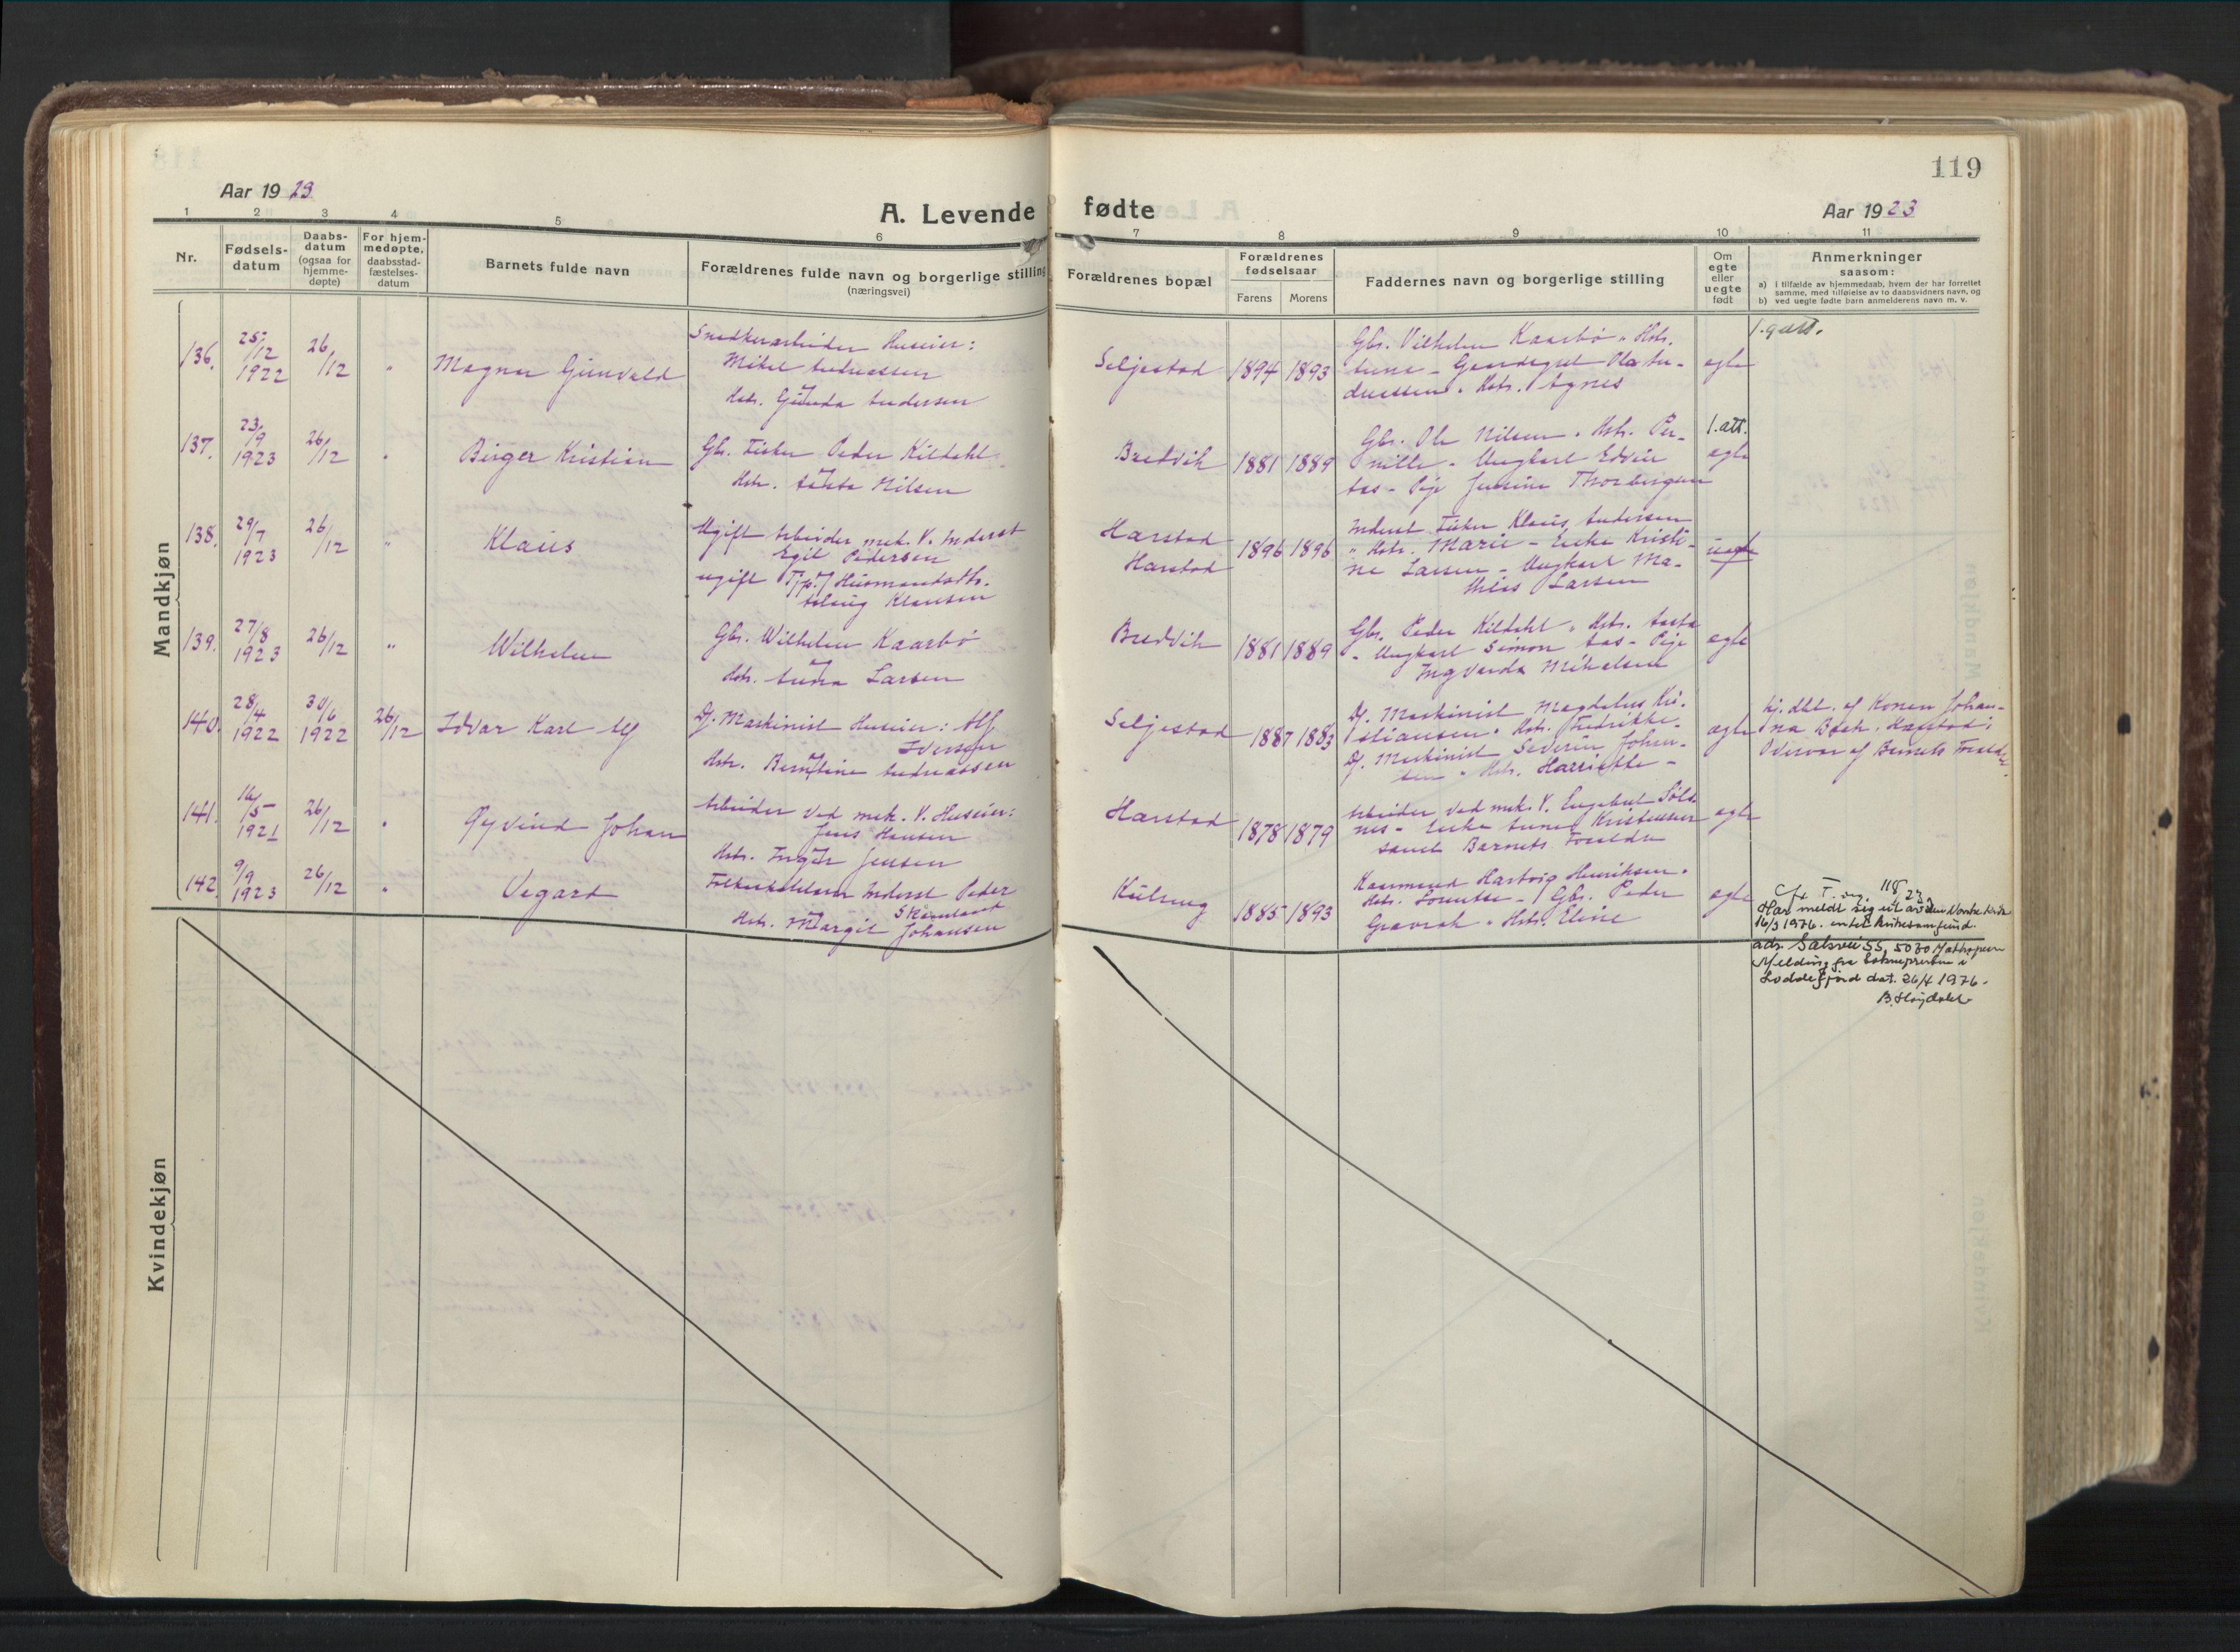 119
Aar 1923
A. Levende fødte
Aar 1923
1 2 3 4 5 6 7 8 9 10 11
Nr.
Fødsels-
datum
Daabs-
datum
(ogsaa for
hjemme-
døpte)
For hjem-
medøpte,
daabsstad-
fæstelses-
datum
Barnets fulde navn
Forældrenes fulde navn og borgerlige stilling
(næringsvei)
Forældrenes bopæl
Forældrenes
fødselsaar
Farens Morens
Faddernes navn og borgerlige stilling
Om
egte
eller
uegte
født
Anmerkninger
saasom:
a) i tilfælde av hjemmedaab, hvem der har forrettet
samme, med tilføielse av to daabsvidners navn, og
b) ved uegte fødte barn anmelderens navn m. v.
Mandkjøn
136. 25/12 1922 26/12 " Magnar Gunvald
Snedkerarbeider Huseier:
Mikal Andreassen
Hstr. Gunda Andersen
Seljestad 1894 1893
Gbr. Vilhelm Kaarbø " Hstr.
Anna - Gaardsgut Ola An-
dreassen. Hstr. Agnes
egte
137. 23/9 1923 26/12 " Birger Kristian
Gbr. Fisker Peder Kildahl
Hstr. Aasta Nilsen
Bredvik 1881 1889
Gbr. Ole Nilsen. Hstr. Per-
nille - Ungkarl Edvin
Aas - Pige Jensine Thorbergsen
egte
1. att.
138. 29/7 1923 26/12 " Klaus
Ugift Arbeider mek. V. Inderst
Egil Pedersen
ugift Tjp. / Husmandsdtr.
Solveig Klausen
Harstad
Harstad
1896 1896
Inderst Fisker Klaus Andersen
" Hstr. Marie - Enke Kristi-
ne Larsen - Ungkarl Ma-
thias Larsen
uegte
139. 27/8 1923 26/12 " Wilhelm
Gbr. Wilhelm Kaarbø
Hstr. Anna Larsen
Bredvik 1881 1889
Gbr. Peder Kildahl " Hstr. Aasta
- Ungkarl Simon Aas - Pige
Ingvarda Mikalsen
egte
140. 28/4 1922 30/6 1922 26/12 Idvar Karl Alf
Dj. Maskinist Huseier: Alf
Iversen
Hstr. Berntine Andreassen
Seljestad 1887 1883
Dj. Maskinist Magdalus Kri-
stiansen. Hstr. Fredrikke -
Dj. Maskinist Severin Johan-
sen " Hstr. Harriette -
egte
hj. dbt. af Konen Johan-
na Bech. Harstad i
Overvær af Barnets Foreldre.
141. 16/5 1921 26/12 " Øyvind Johan
Arbeider ved mek. V. Huseier:
Jens Hansen
Hstr. Inga Jensen
Harstad 1878 1879
Arbeider ved mek. V. Engebret
- Enke Anne Kristensen
samt Barnets Foreldre
egte
142. 9/9 1923 26/12 " Vegard
Inderst Peder
Hstr. Margit Johansen
1885 1893
Kaarmand Hartvig Henriksen.
Hstr. - Gbr. Peder
Gravrok " Hstr. Eline
egte
118
Har meldt seg ut av den Norske kirke
16/3 1976. kirkesamfund.
adr. Sælsvei 55, 5070 Mathopen
Melding fra Sokneprestin i
Loddefjord dat. 26/4 1976.
B. Høydalet
Kvindekjøn